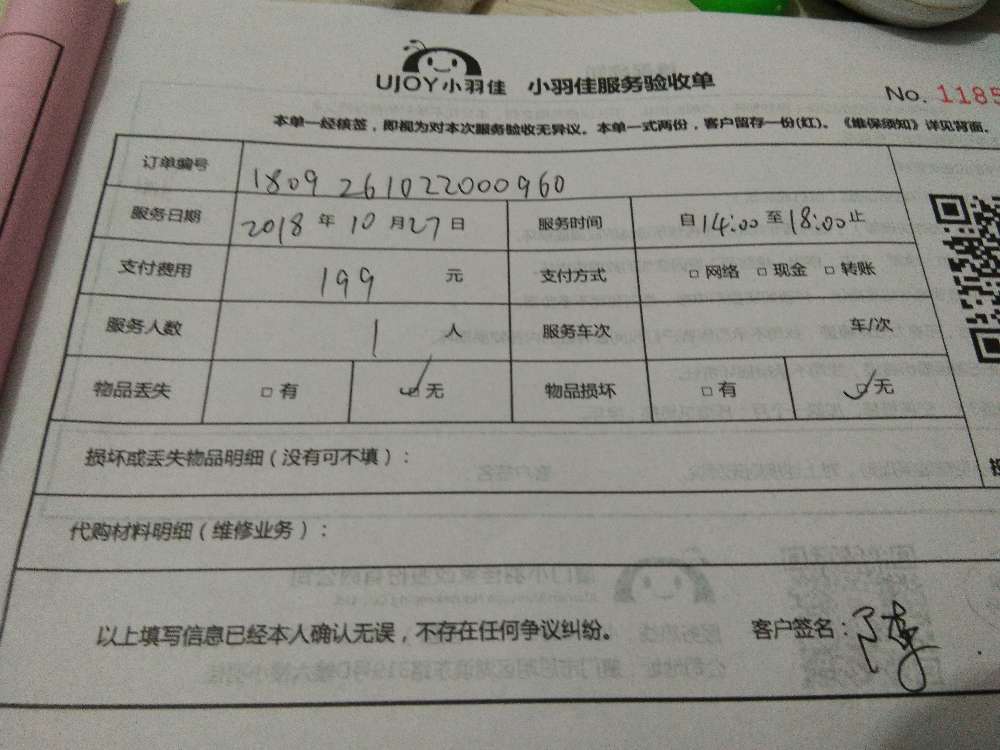 UJOY小羽佳 小羽佳服务验收单
No. 1185
本单一经核签，即视为对本次服务验收无异议。本单一式两份，客户留存一份(红)。《维保须知》详见背面。
订单编号 1809 261022000960
服务日期 2018 年 10 月 27 日 服务时间 自 14:00 至 18:00 止
支付费用 199 元 支付方式 □ 网络 □ 现金 □ 转账
服务人数 1 人 服务车次 车/次
物品丢失 □ 有 ☑ 无 物品损坏 □ 有 ☑ 无
损坏或丢失物品明细（没有可不填）：
代购材料明细（维修业务）：
以上填写信息已经本人确认无误，不存在任何争议纠纷。 客户签名：